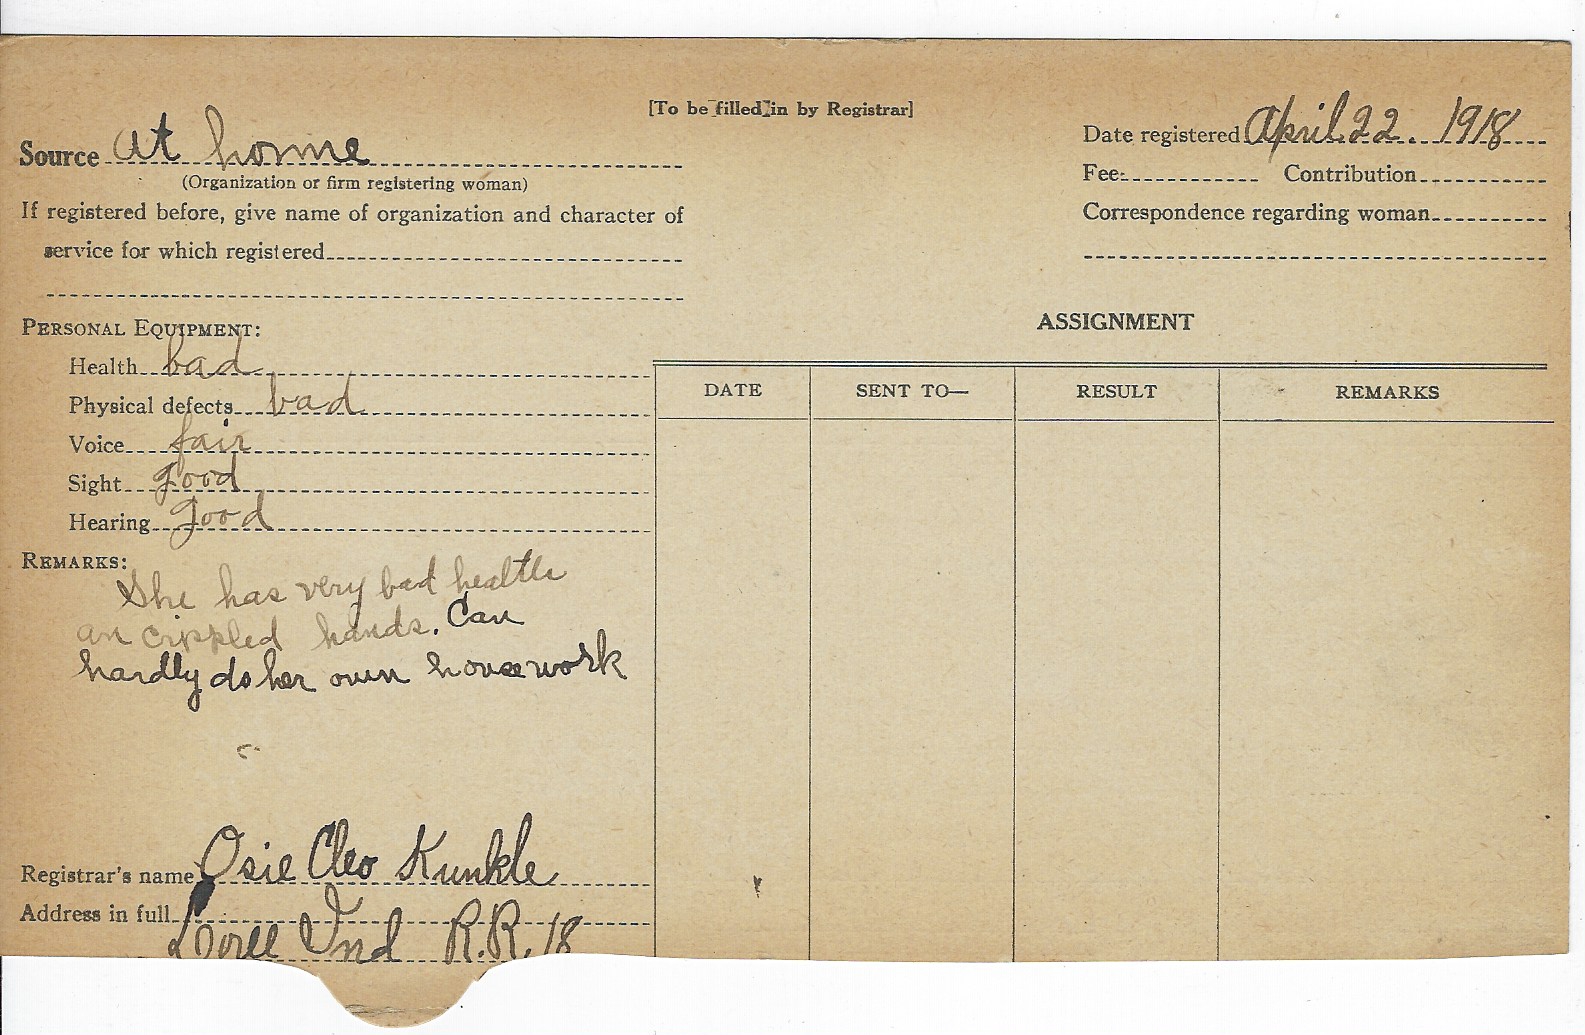 [To be filled in by Registrar]
Source at home
(Organization or firm registering woman)
If registered before, give name of organization and character of
service for which registered
Date registered April 22. 1918
Fee Contribution
Correspondence regarding woman
PERSONAL EQUIPMENT:
Health bad
Physical defects bad
Voice fair
Sight good
Hearing good
REMARKS:
She has very bad health
an crippled hands. Can
hardly do her own housework
Registrar's name Osie Cleo Kunkle
Address in full
Loree Ind R.R. 18
ASSIGNMENT
DATE SENT TO— RESULT REMARKS